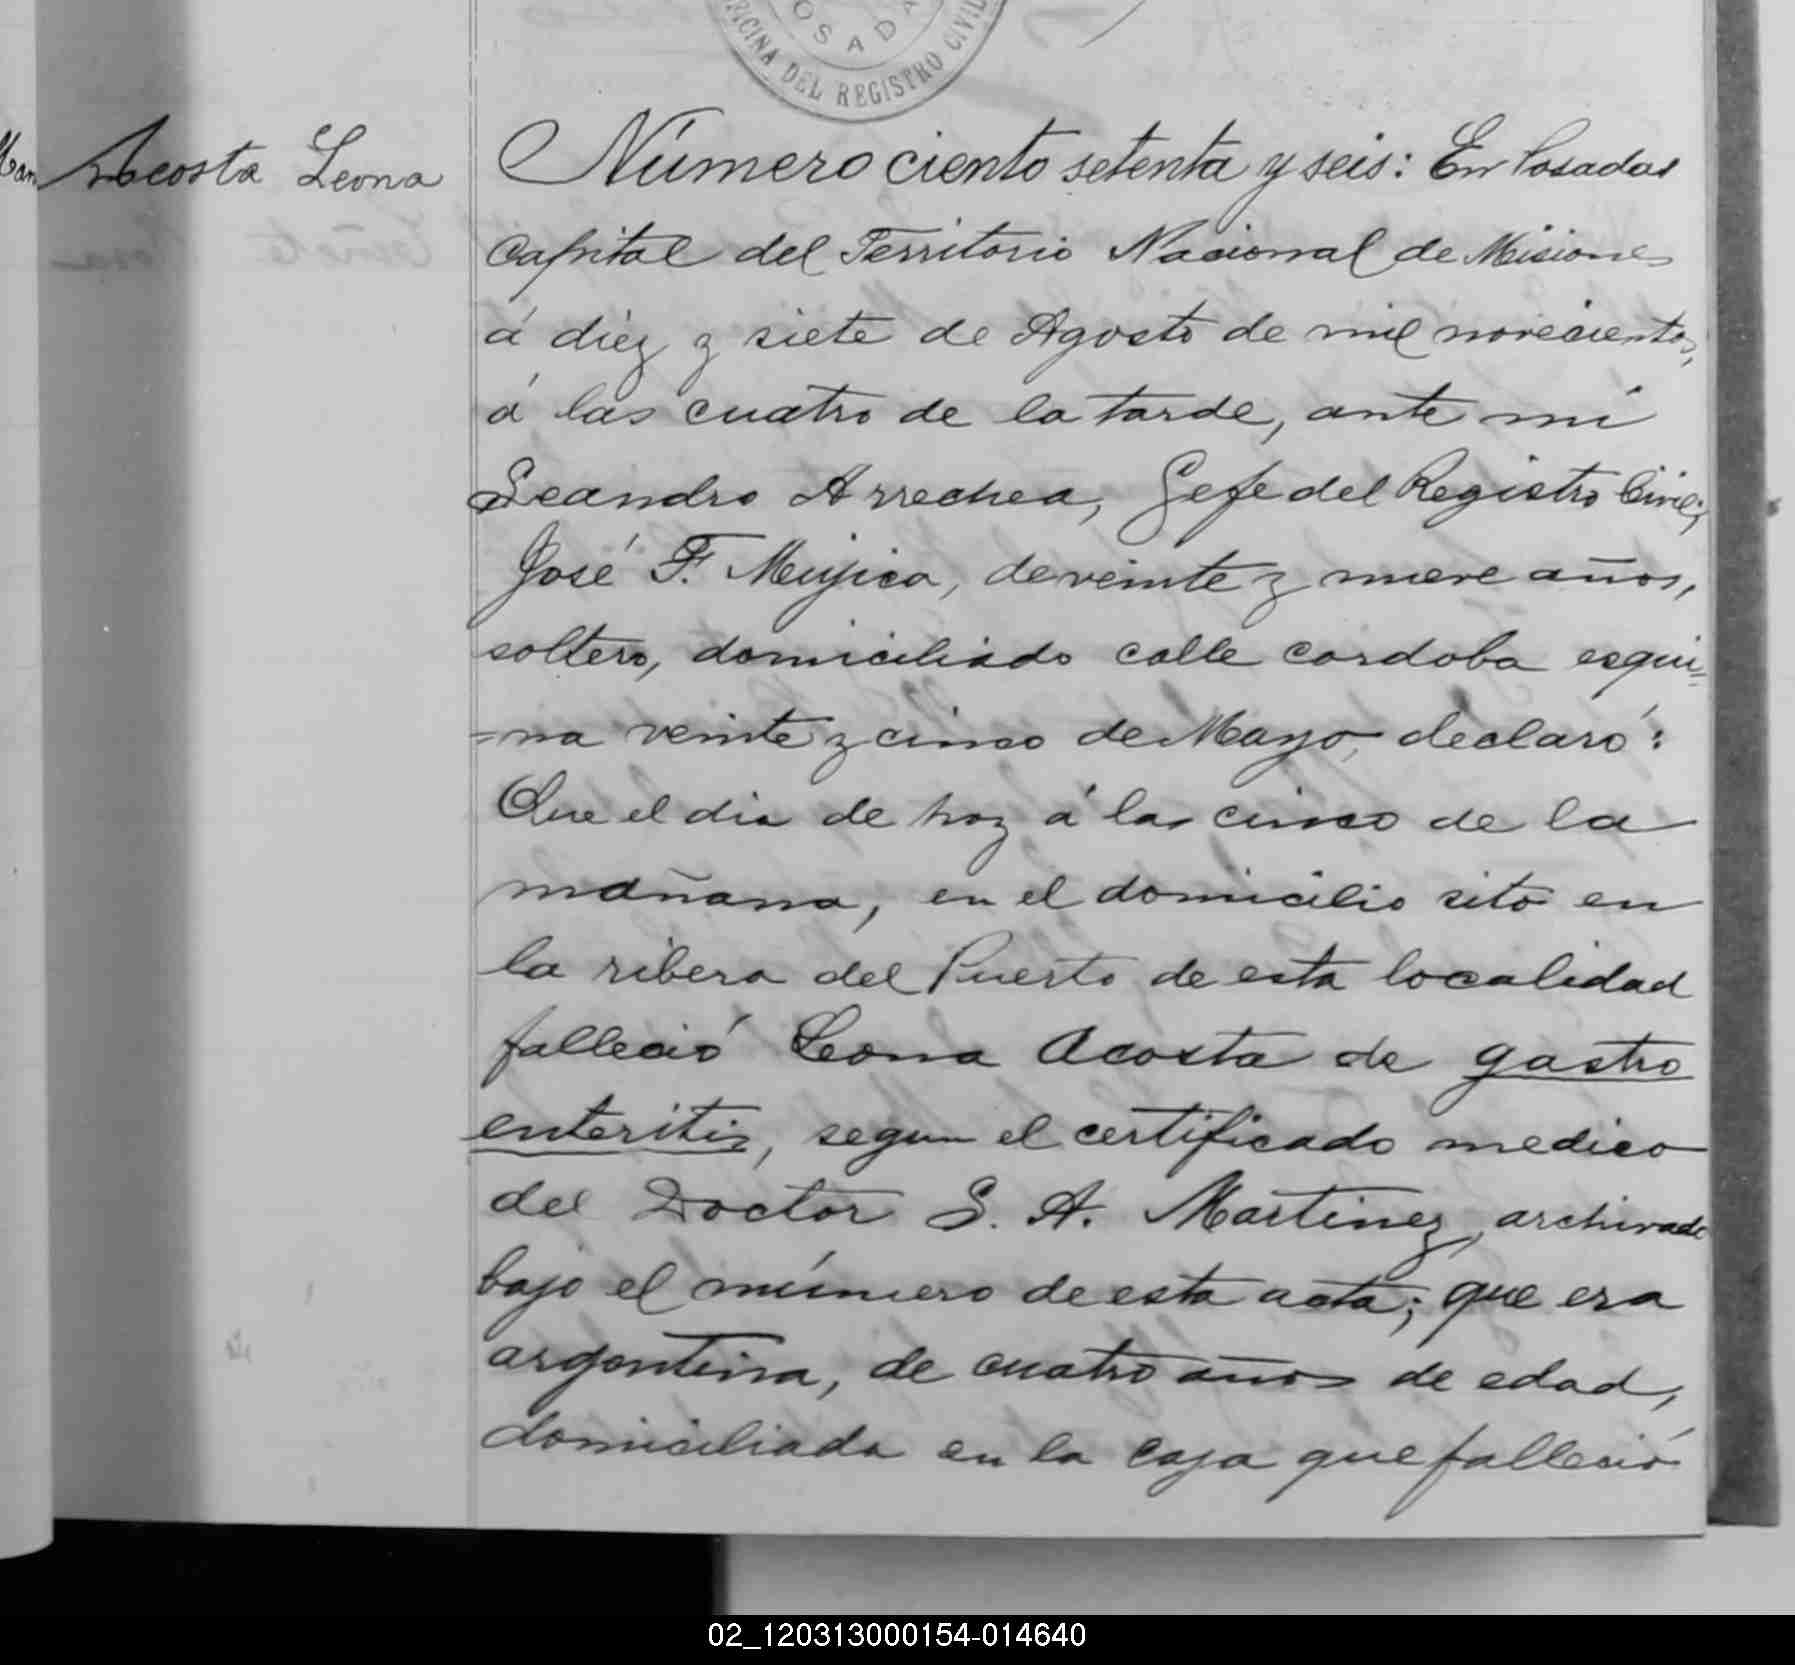 POSADAS
OFICINA DEL REGISTRO CIVIL
Acosta Leona
Número ciento setenta y seis: En Posadas
Capital del Territorio Nacional de Misiones
á diez y siete de Agosto de mil novecientos,
á las cuatro de la tarde, ante mí
Leandro Arrechea, Gefe del Registro Civil;
José F. Mujica, de veinte y nueve años,
soltero, domiciliado calle cordoba esqui=
=na veinte y cinco de Mayo, declaró:
Que el dia de hoy á las cinco de la
mañana, en el domicilio sito en
la ribera del Puerto de esta localidad
falleció Leona Acosta de gastro
enteritis, segun el certificado medico
del Doctor S. A. Martinez, archivado
bajo el número de esta acta; que era
argentina, de cuatro años de edad,
domiciliada en la casa que falleció
02_120313000154-014640